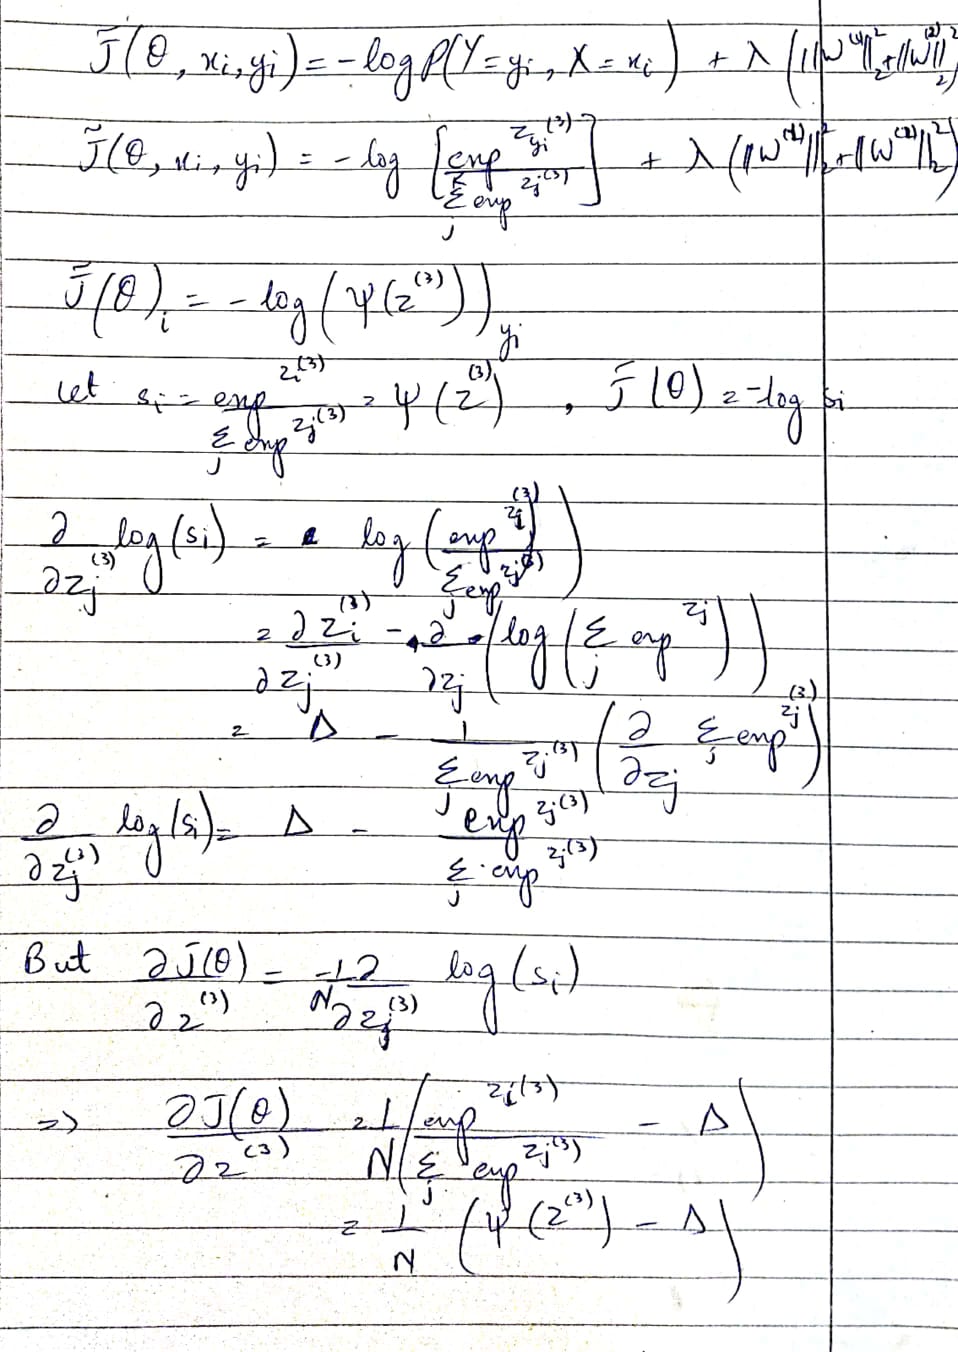 J̃(θ, xi, yi) = -log P(Y = yi, X = xi) + λ(||W^(1)||₂² + ||W^(2)||₂²)
J̃(θ, xi, yi) = -log [exp^{z_{yi}^(3)} / Σ_j^K exp^{z_j^(3)}] + λ(||W^(1)||₂² + ||W^(2)||₂²)
J̃(θ)_i = -log(ψ(z^(3)))_{yi}
Let s_i = exp^{z_i^(3)} / Σ_j exp^{z_j^(3)} = ψ(z^(3)), J̃(θ) = -log s_i
∂/∂z_j^(3) log(s_i) = log(exp^{z_i^(3)} / Σ_j exp^{z_j^(3)})
= ∂z_i^(3)/∂z_j^(3) - ∂/∂z_j (log(Σ_j exp^{z_j}))
= Δ - 1/(Σ_j exp^{z_j^(3)}) (∂/∂z_j Σ_j exp^{z_j^(3)})
∂/∂z_j^(3) log(s_i) = Δ - exp^{z_j^(3)} / Σ_j exp^{z_j^(3)}
But ∂J̃(θ)/∂z^(3) = -1/N ∂/∂z_j^(3) log(s_i)
=> ∂J(θ)/∂z^(3) = 1/N (exp^{z_i^(3)} / Σ_j exp^{z_j^(3)} - Δ)
= 1/N (ψ(z^(3)) - Δ)